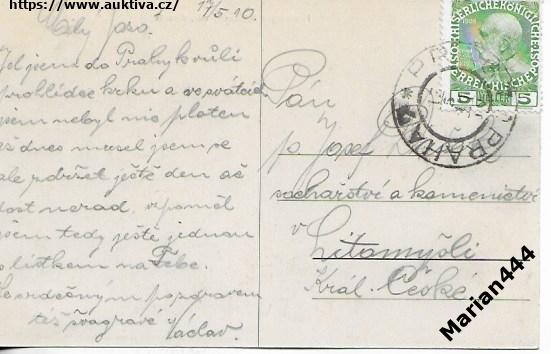 https://www.auktiva.cz/
17/5.10.
Milý Jaro.
Jel jsem do Prahy kvůli
prohlídce krku a ve svátcích
jsem nebyl nic platen
též dnes musel jsem se
ale zdržet ještě den ač
dost nerad. vzpoměl
jsem tedy ještě jednou
lístkem na Tebe.
Se srdečným pozdravem
též švagrové Václav.
Pán
p. Josef
sochařství a kamenictví
v
Litomyšli
Král. České
KAISERLICHE KÖNIGLICHE
ÖSTERREICHISCHE POST
1908
5 HELLER 5
PRAHA
Marian444